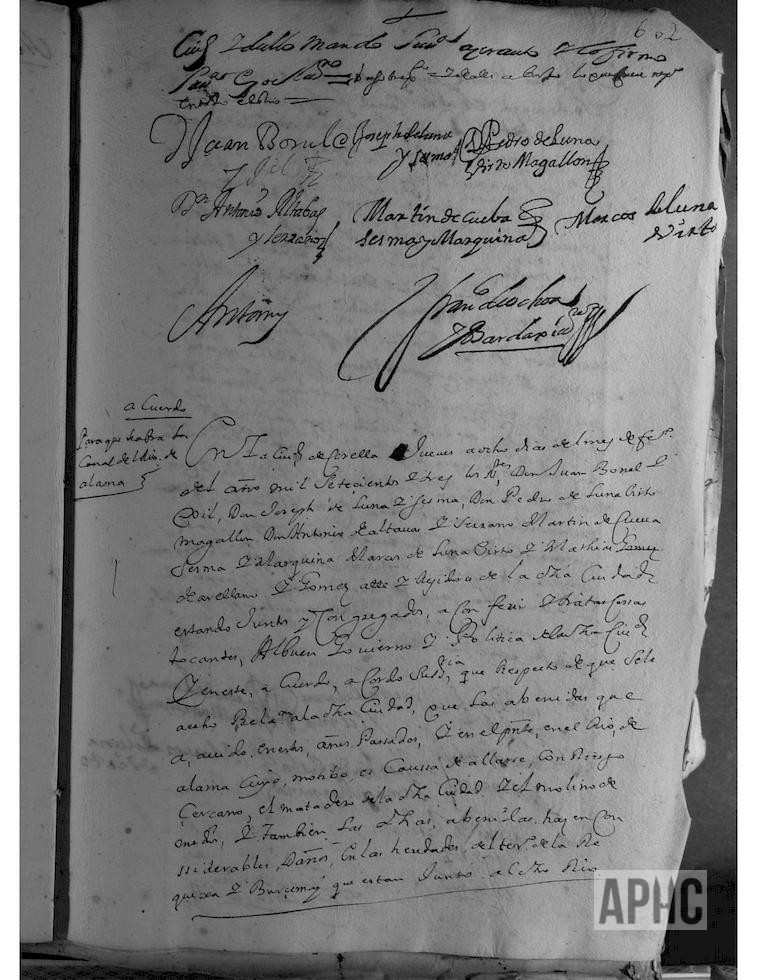 602
Ciud y dello mando
entado
Juan Bonel
y Gil
Joseph de Luna
y sesma
Pedro de Luna
Virto Magallon
Dn Antonio Altabas
y serrano
Martin de Cueba
sesma y Marquina
Marcos de Luna
Virto
Antomi
Franco de ochoa
y Bardaxia
a Cuerdo
Para que se abra la
Canal del Rio de
alama
En La Ciud de Corella Jueves a ocho dias del mes de feo
del año mil setecientos y tres los Srs Don Juan Bonel y
Gil, Don Joseph de Luna y sesma, Don Pedro de Luna Virto
magallon Don Antonio de altavas y serrano Martin de Cueva
sesma y Marquina Marcos de Luna Virto y Mathias Gomez
de arellano y Gomez alle y Rejidores de la dha Ciudad
estando Juntos y Congregados, a Conferir y tratar Cossas
tocantes, Al buen Govierno y Politica de la dha Ciud
que Respecto de que se le
a echo Relon a la dha Ciudad, que las abenidas que
a, auido, en estos, años, Passados, y en el pnte, en el Rio, de
alama Cuyo, motibo, es Caussa de allarse, con Riesgo
Cercano, el matadero de la dha Ciudad y el molino de
medio, y tambien las dhas, abenidas, hazen Con
ssiderables, Daños, En las heredades del termo de la Re
y que estan Junto al dho Rio
APHC